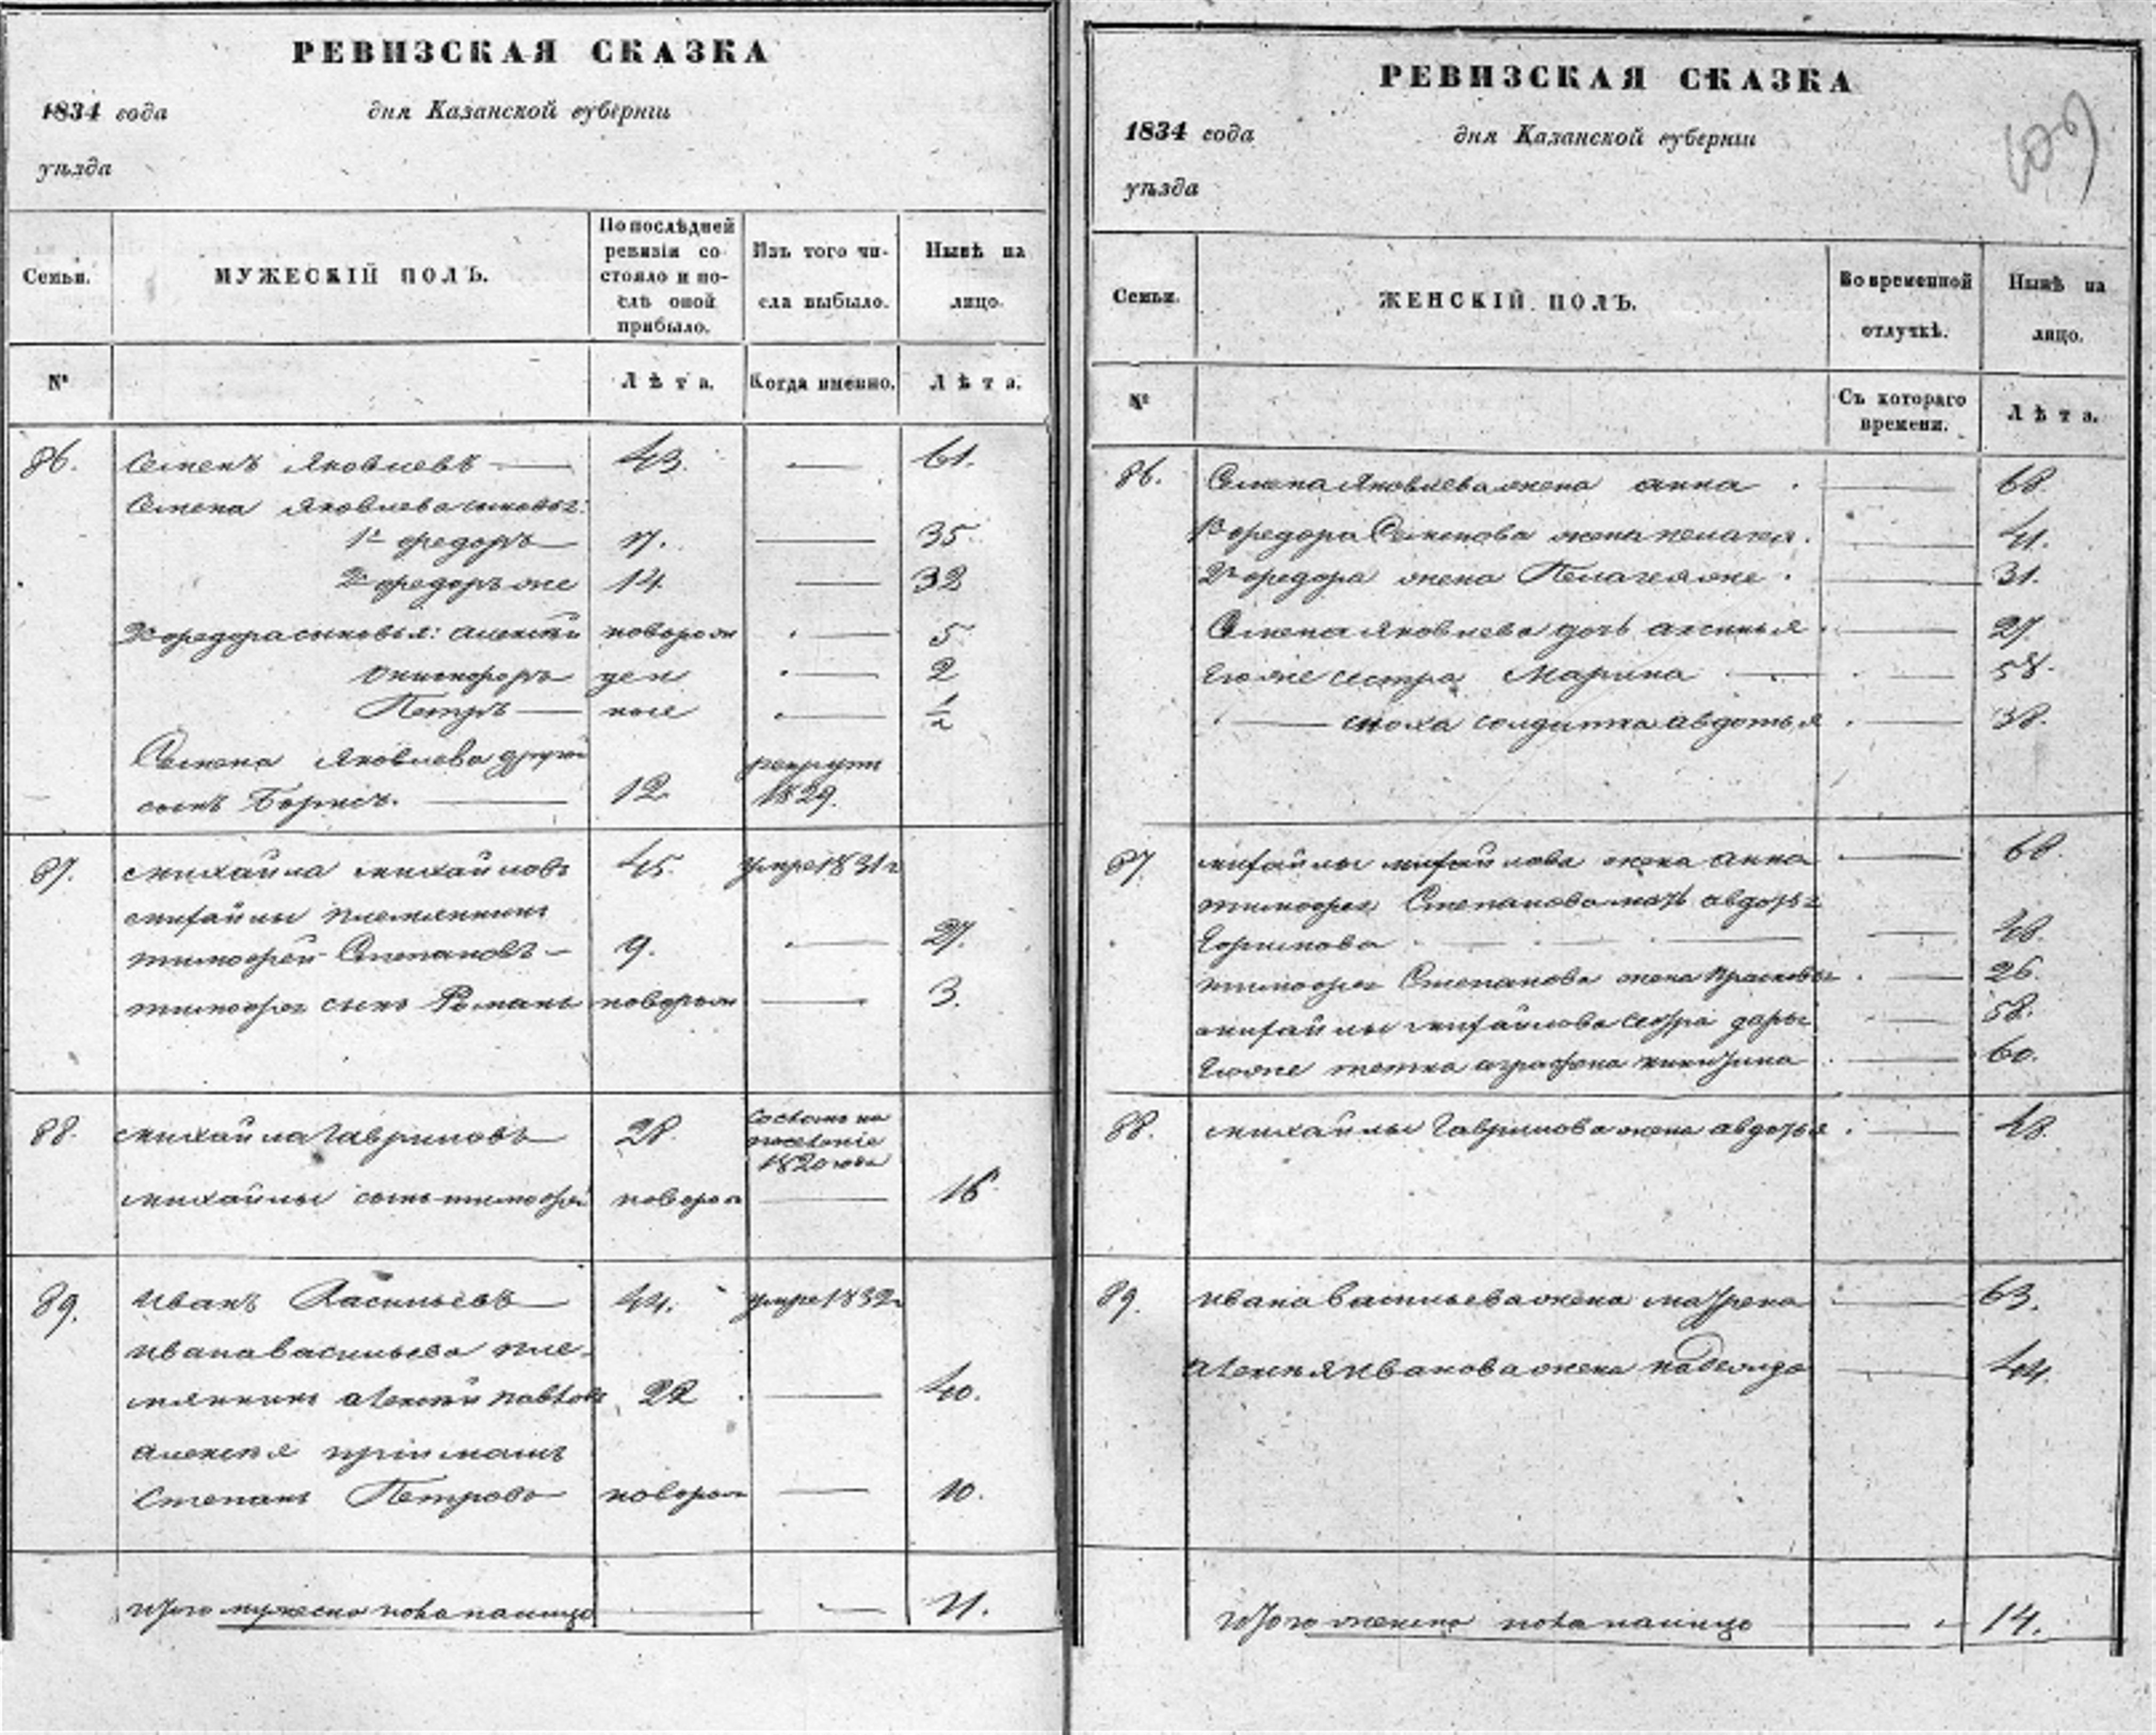 РЕВИЗСКАЯ СКАЗКА
1834 года дня Казанской губернiи
уѣзда
Семьи. МУЖЕСКIЙ ПОЛЪ. По послѣдней ревизiи состояло и послѣ оной прибыло. Изъ того числа выбыло. Нынѣ на лицо.
№ Лѣта. Когда именно. Лѣта.
86. Семенъ Яковлевъ — 43. — 61.
Семена Яковлева сыновья:
1й Федоръ — 17. — 35.
2й Федоръ же 14. — 32
2го Федора сыновья: Алексѣй новорож — 5
Никифоръ ден — 2
Петръ — ные — ½
Семена Яковлева другой рекрутъ
сынъ Борисъ. — 12 1829.
87. Михайла Михайловъ 45. умре 1831г
Михайлы племянникъ
Тимофей Степановъ — 9. — 27.
Тимофея сынъ Романъ новорож — 3.
88. Михайла Гавриловъ — 28. на поселенiе 1820 года
Михайлы сынъ Тимофей новорож — 16
89. Иванъ Васильевъ — 44. умре 1832г
Ивана Васильева пле-
мянникъ Алексѣй 22 — 40.
Алексѣя прiимышъ
Степанъ Петровъ новорож — 10.
Итого мужеска пола на лицо — — 11.
РЕВИЗСКАЯ СКАЗКА
1834 года дня Казанской губернiи
уѣзда
109
Семьи. ЖЕНСКIЙ ПОЛЪ. Во временной отлучкѣ. Нынѣ на лицо.
№ Съ котораго времени. Лѣта.
86. Семена Яковлева жена Анна — 68.
1го Федора Семенова жена Пелагея. — 41.
2го Федора жена Пелагея же — 31.
Семена Яковлева дочь Аксинья — 27.
Его же сестра Марина — — 58.
— сноха солдатка Авдотья — 38.
87. Михайлы Михайлова жена Анна — 68.
Тимофея Степанова мать Авдотья
— 48.
Тимофея Степанова жена Прасковья — 26.
Михайлы Михайлова сестра Дарья — 58.
Его же тетка Аграфена Никитина — 60.
88. Михайлы Гаврилова жена Авдотья — 48.
89. Ивана Васильева жена Матрена — 63.
Алексѣя Иванова жена Надежда — 44.
Итого женска пола на лицо — 14.